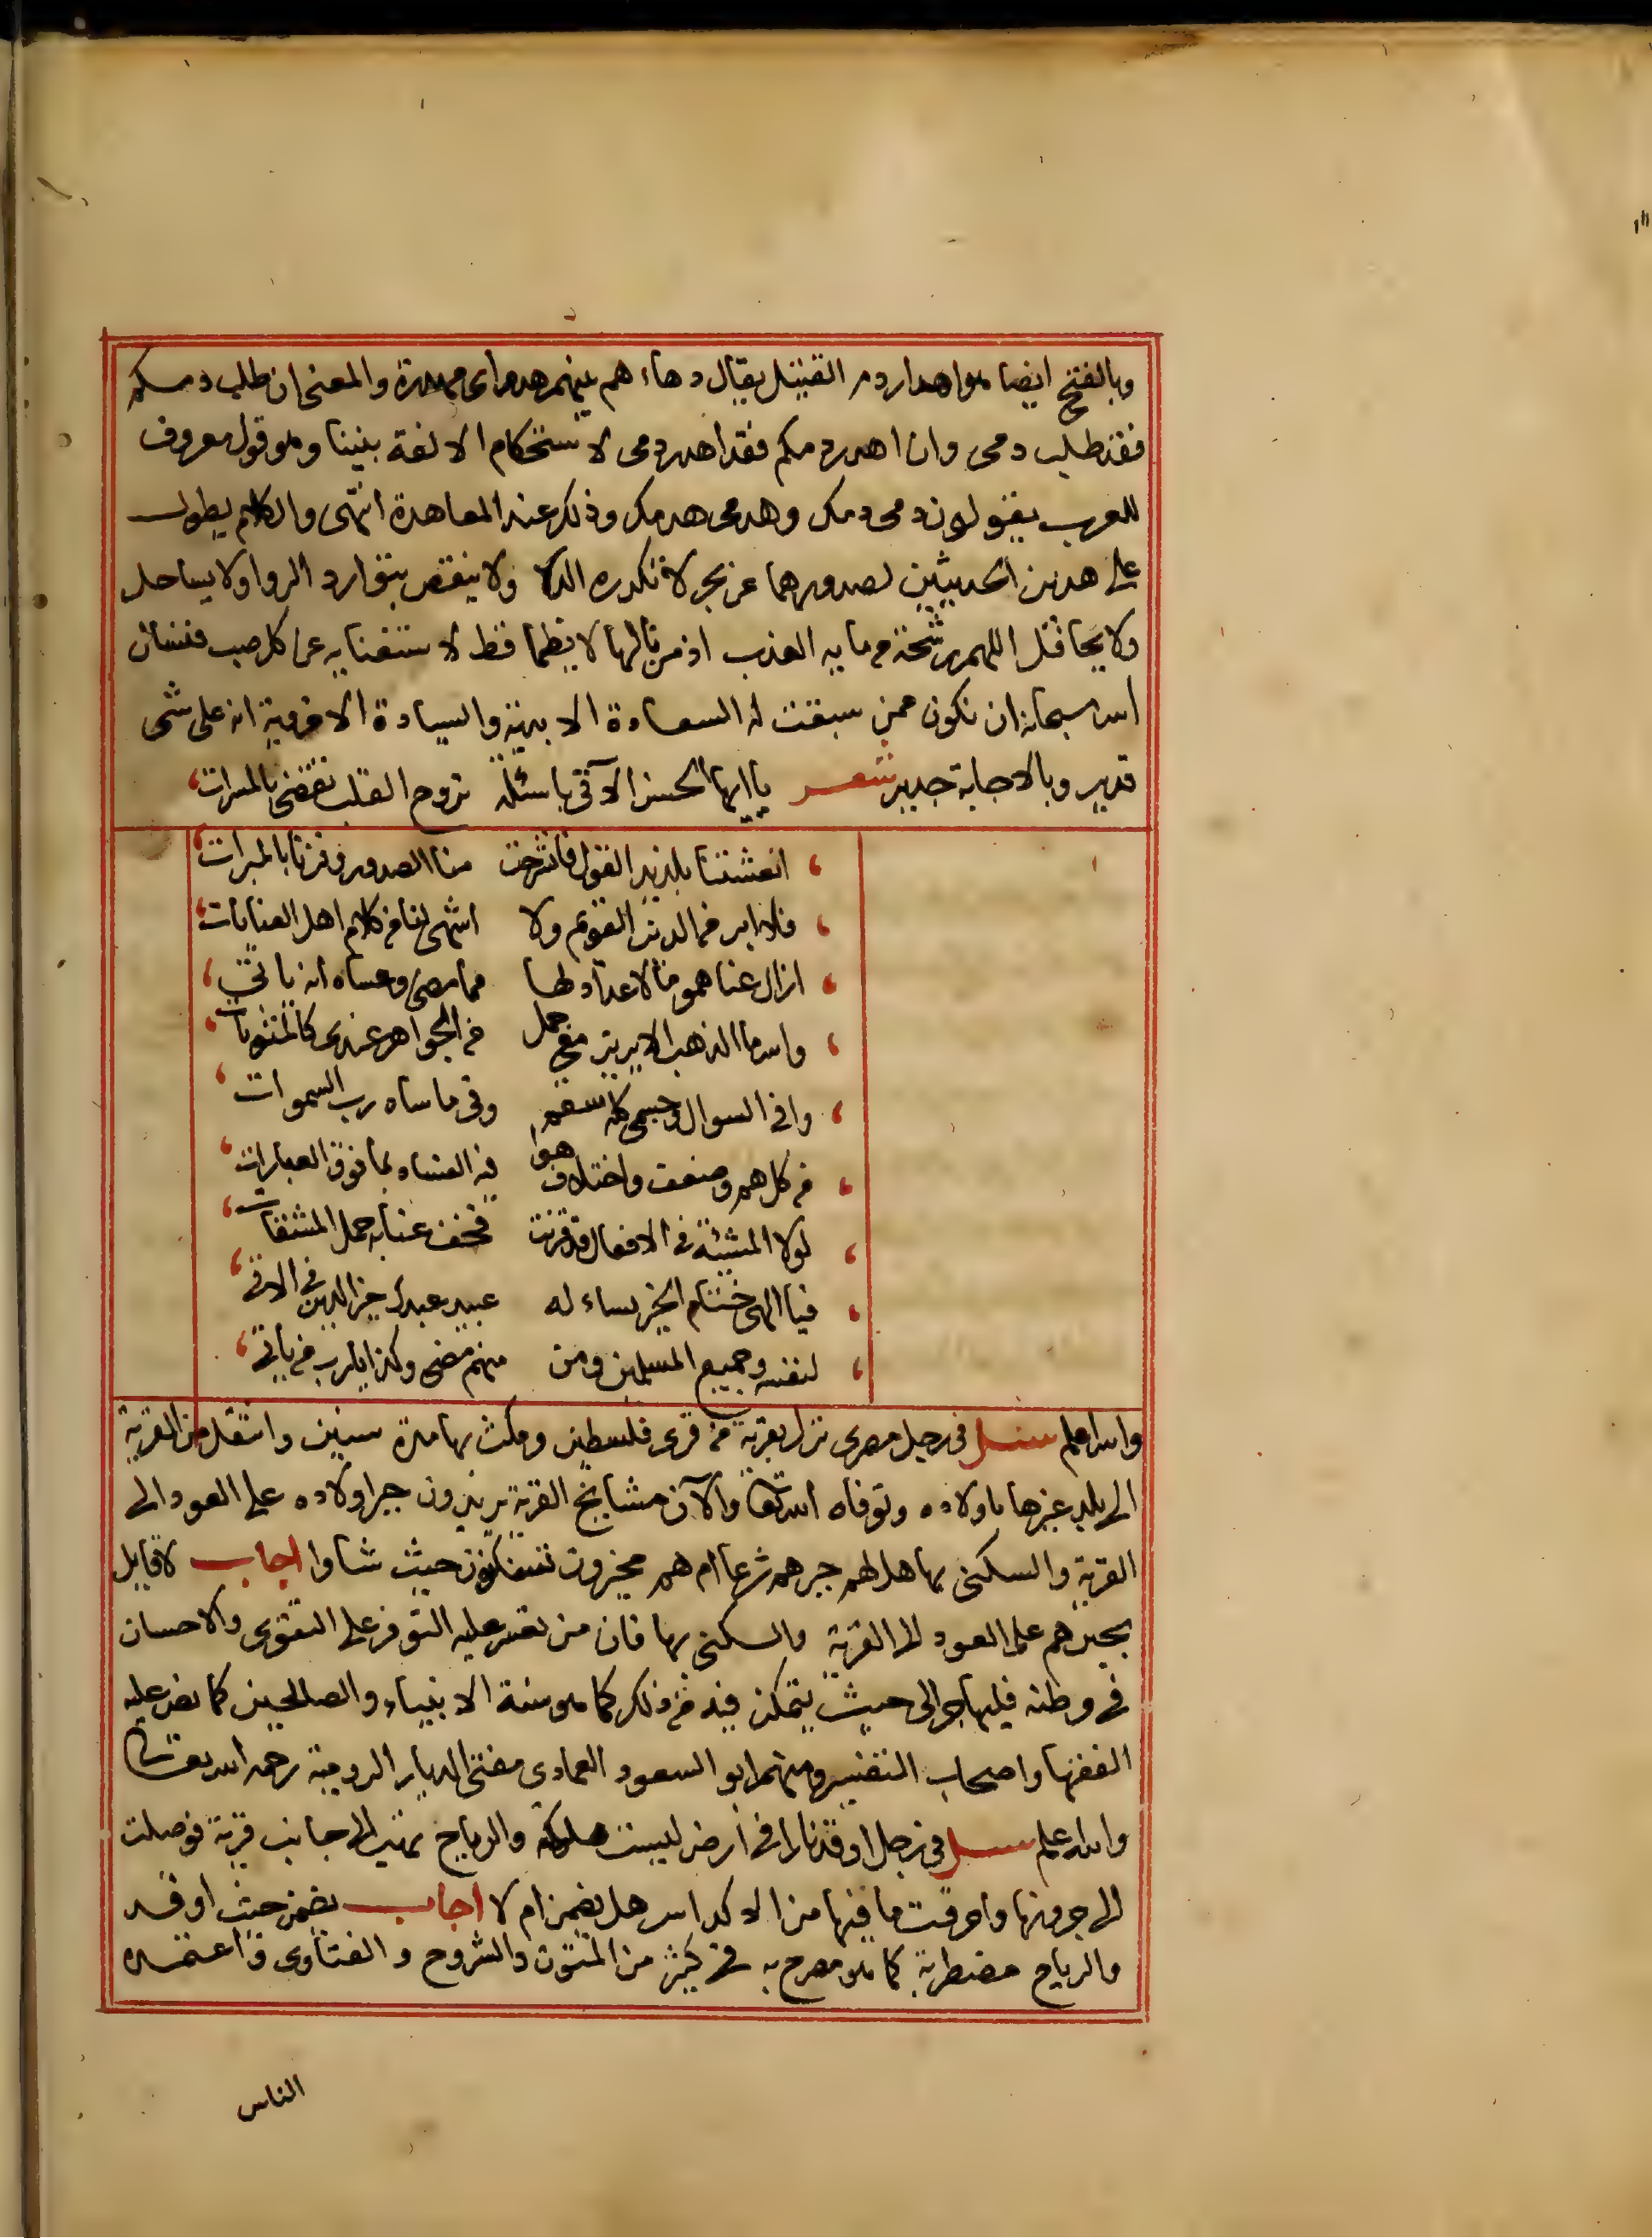 وبالفتح ايضا هو اهدار دم القتيل يقال دماءهم بينهم هدم اي مهدرة والمعنى ان طلب دمكم
فقد طلب دمي وان اهدر دمكم فقد اهدر دمي لاستحكام الالفة بيننا وهو قول معروف
للعرب يقولون دمي دمك وهدمي هدمك وذلك عند المعاهدة انتهى والكلام يطول
على هذين الحديثين لصدورهما عن بحر لا تكدره الدلا ولا ينقص بتوارد الروا ولا يساحل
ولا يحافل اللهم رشحة من مايه العذب اذ من نالها لا يظما قط لاستغنايه عن كل صب فنسال
الله سبحانه ان نكون ممن سبقت له السعادة الابدية والسيادة الاخروية انه على شي
قدير وبالاجابة جدير شعر يا ايها الحسن الآتي باسئلة تروح القلب تقضي بالمسرات
انعشتنا بلذيذ القول فانشرحت منا الصدور وفزنا بالمبرات
فلا ابر من الدين القويم ولا اشهى لنا من كلام اهل العنايات
ازال عنا هموما لا عداد لها مما مضى وعساه انه ياتي
والله ما الذهب الابريز مع جمل من الجواهر عندي كالمثوبات
وافى السوال وجسمي كله سقم وقى ما ساه رب السموات
من كل هم وضعف واختلاف هوا فيه الفساد بما فوق العبارات
لولا المشيئة في الافعال قد قرنت فخف عنا به حمل المشقات
فيا الهي ختام الخير يساءله عبيد عبدك خير الدين في الآتي
لنفسه وجميع المسلمين ومن منهم مضى وكذا يا رب من ياتي
والله اعلم سئل في رجل مصري نزل بقرية من قرى فلسطين ومكث بها مدة سنين وانتقل من القرية
الى بلد غيرها باولاده وتوفاه الله تعا والآن مشايخ القرية يريدون جبر اولاده على العود الى
القرية والسكنى بها هل لهم جبرهم شرعا ام هم مخيرون يسكنون حيث شاوا اجاب لا قايل
بجبرهم على العود الى القرية والسكنى بها فان من تعسر عليه التوفر على التقوى والاحسان
في وطنه فليهاجر الى حيث يتمكن فيه من ذلك كما هو سنة الانبياء والصالحين كما نص عليه
الفقها واصحاب التفسير ومنهم ابو السعود العمادي مفتي الديار الرومية رحمه الله تعالى
والله اعلم سئل في رجل اوقد نارا في ارض ليست مملوكة والرياح تهب الى جانب قرية فوصلت
الى جرونها واحرقت ما فيها من الاكداس هل يضمن ام لا اجاب يضمن حيث اوقد
والرياح مضطربة كما هو مصرح به في كثير من المتون والشروح والفتاوى واعتمده
الناس